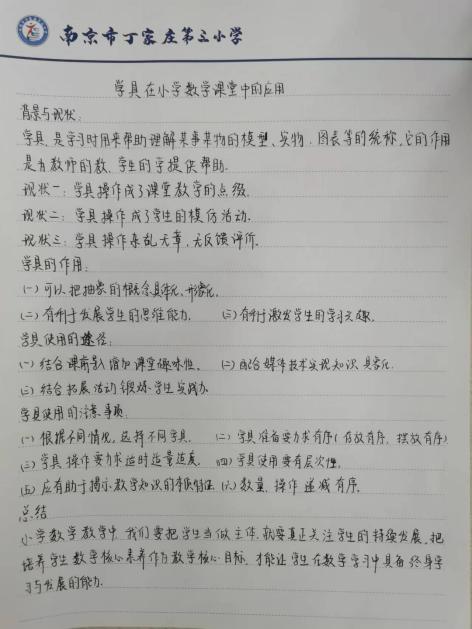 南京市丁家庄第三小学
学具在小学数学课堂中的应用
背景与现状:
学具,是学习时用来帮助理解某事某物的模型、实物、图表等的统称,它的作用
是为教师的教、学生的学提供帮助.
现状一: 学具操作成了课堂教学的点缀.
现状二: 学具操作成了学生的模仿活动.
现状三: 学具操作杂乱无章,无反馈评价.
学具的作用:
(一) 可以把抽象的概念具体化、形象化.
(二) 有利于发展学生的思维能力. (三) 有利于激发学生的学习兴趣.
学具使用的途径:
(一) 结合课前导入增加课堂趣味性. (二) 配合媒体技术实现知识具象化.
(三) 结合拓展活动锻炼学生实践力.
学具使用的注意事项:
(一) 根据不同情况,选择不同学具. (二) 学具准备要力求有序(存放有序,摆放有序)
(三) 学具操作要力求适时适量适度. (四) 学具使用要有层次性.
(五) 应有助于揭示数学知识的本质特征. (六) 数量、操作递减有序.
总结
小学数学教学中,我们要把学生当做主体,就要真正关注学生的持续发展,把
培养学生数学核心素养作为数学核心目标,才能让学生在数学学习中具备终身学
习与发展的能力.